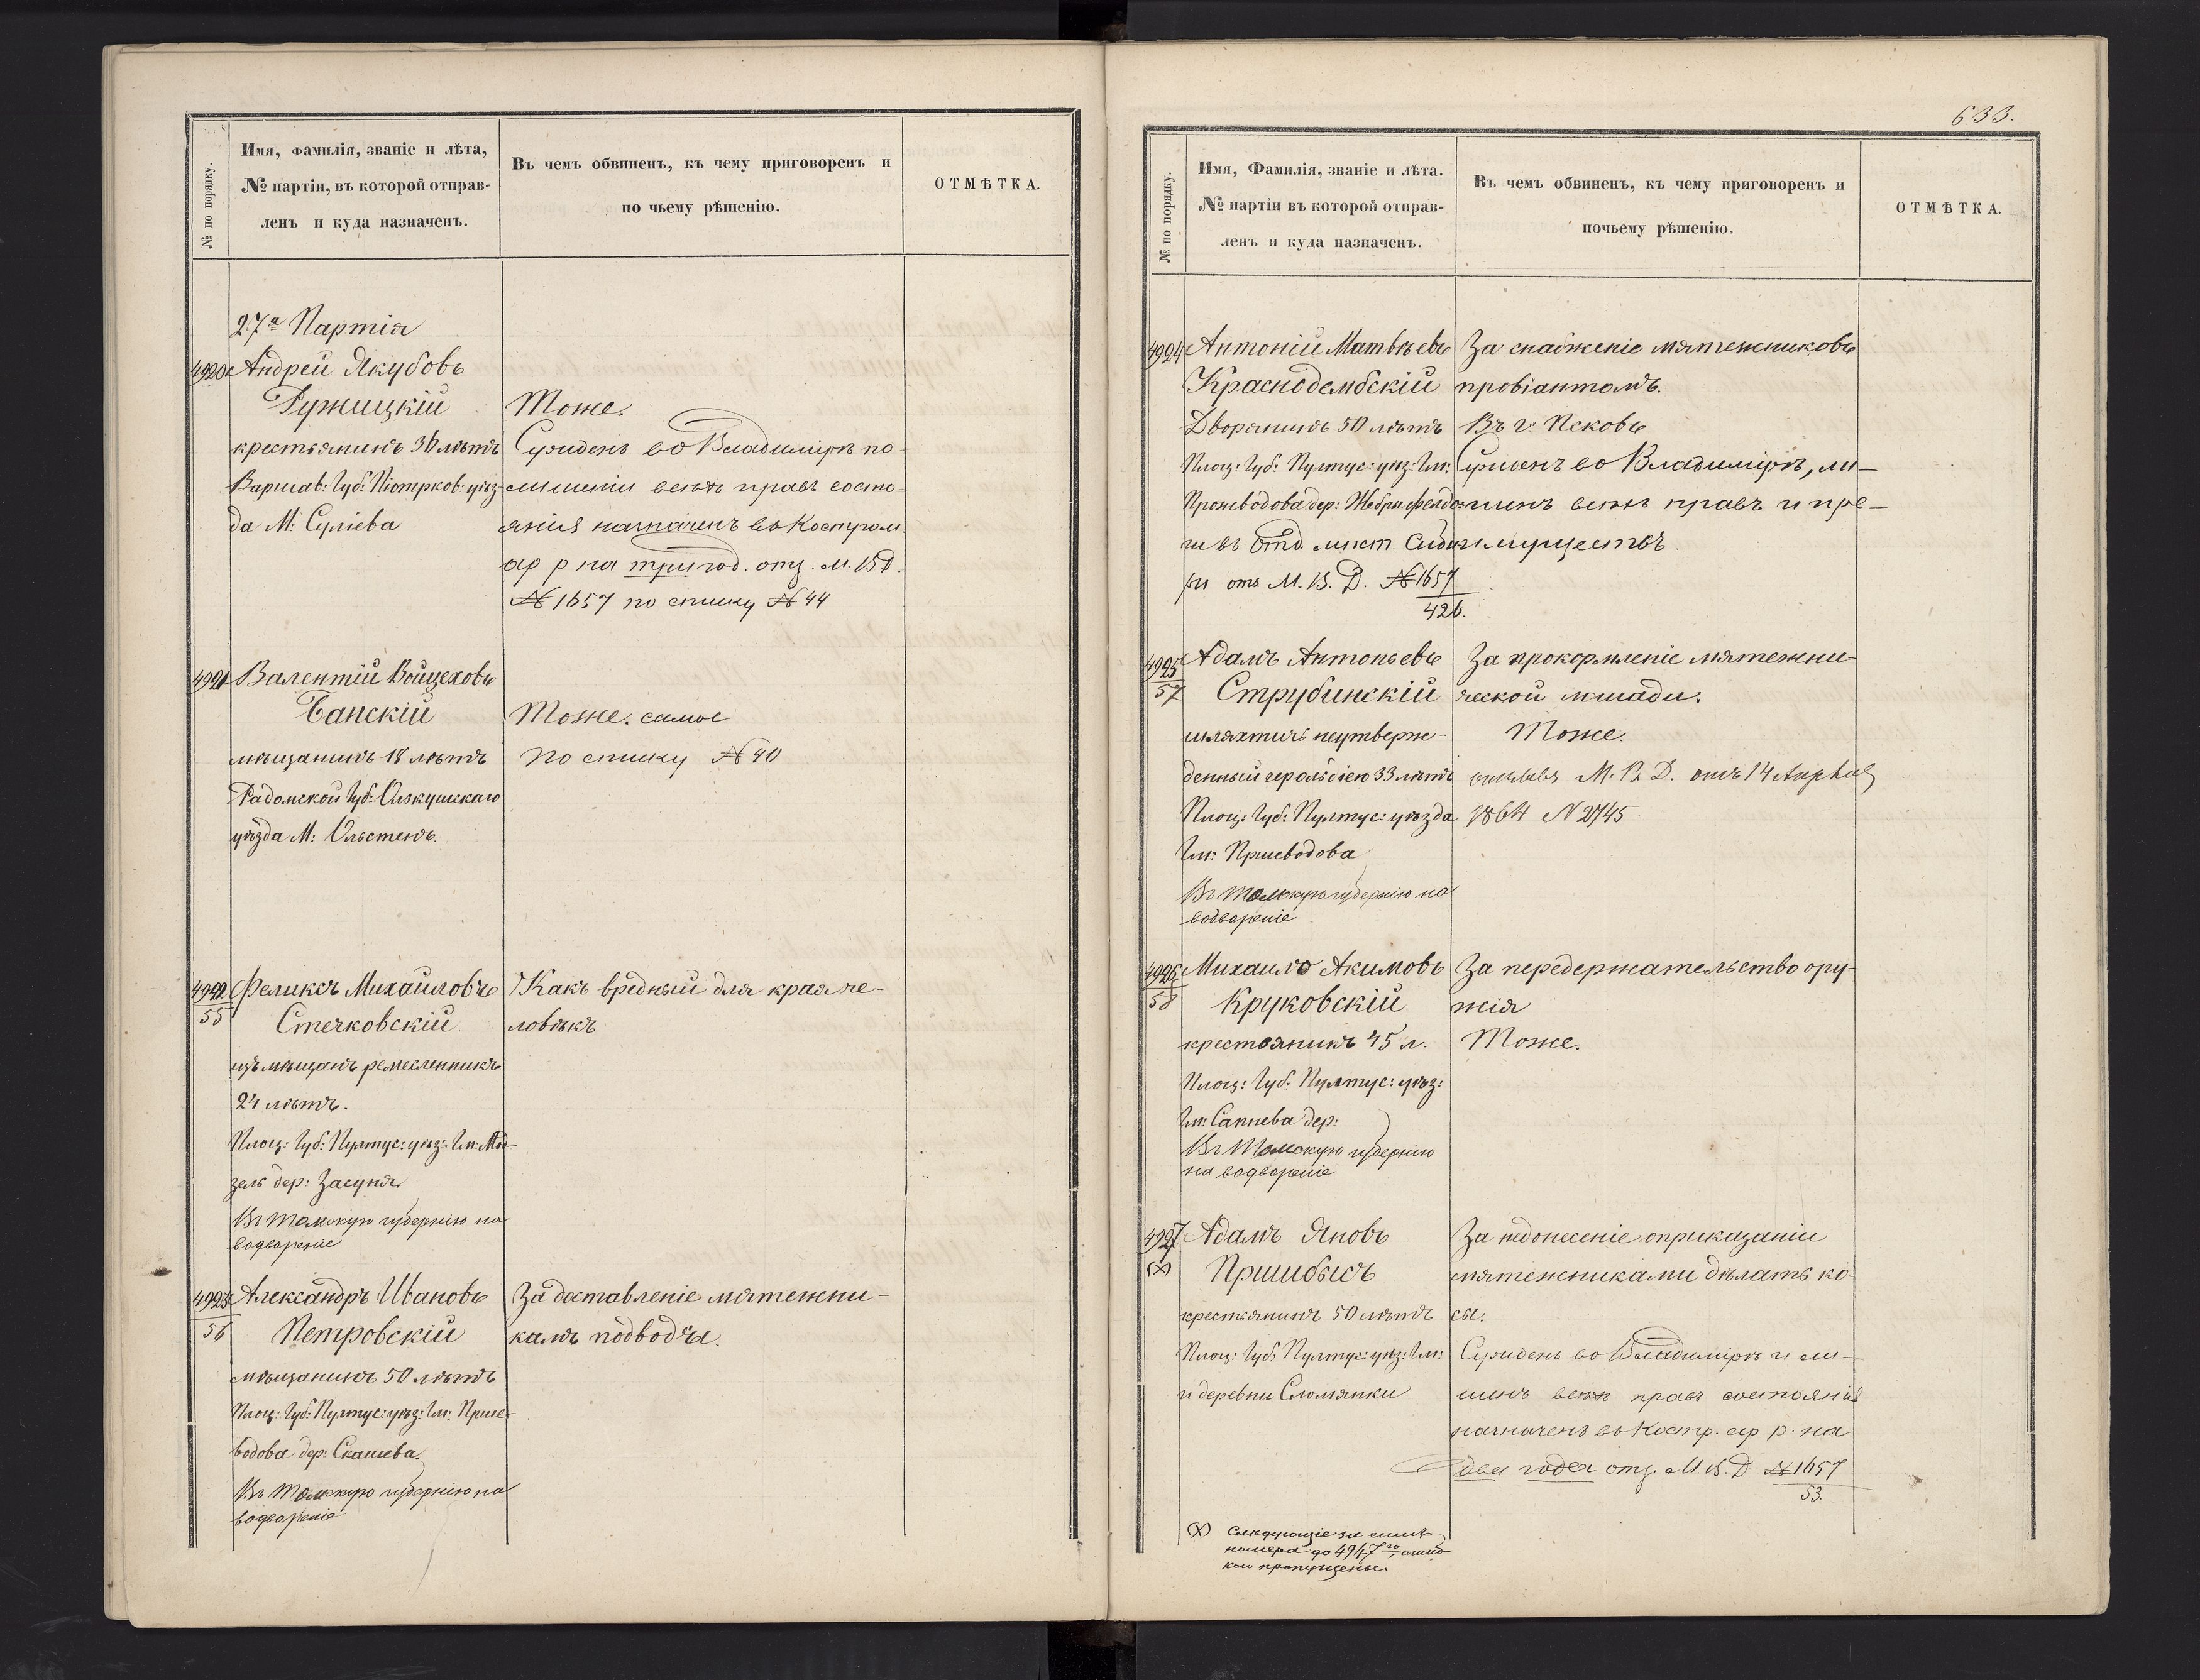 № по порядку.
Имя, фамилія, званіе и лѣта,
№ партіи, въ которой отправ-
ленъ и куда назначенъ.
Въ чемъ обвиненъ, къ чему приговоренъ и
по чьему рѣшенію.
ОТМѢТКА.
27а Партія
4920 Андрей Якубовъ
Ружицкій
крестьянинъ 36 лѣтъ
Варшав: Губ: Піотрков: уѣз-
да М: Суліева
Тоже.
Сужденъ во Владимірѣ по
лишеніи всѣхъ правъ состо-
янія назначенъ въ Костром.
ар р на три год. отз. М. В. Д.
№ 1657 по списку № 44
4921 Валентій Войцеховъ
Банскій
мѣщанинъ 18 лѣтъ
Радомской Губ: Олькушскаго
уѣзда М: Ольстенъ.
Тоже. самое
по списку № 40
4922 Феликсъ Михайловъ
55 Стечковскій
изъ мѣщанъ ремесленникъ
24 лѣтъ.
Плоц: Губ: Пултус: уѣз: Гм:
зель дер: Засуня
Въ Томскую губернію на
водвореніе
Какъ вредный для края че-
ловѣкъ
4923 Александръ Ивановъ
56 Петровскій
мѣщанинъ 50 лѣтъ
Плоц: Губ: Пултус: уѣз: Гм: Прше-
водова дер: Скашева
Въ Томскую губернію на
водвореніе
За доставленіе мятежни-
камъ подводы.
633.
№ по порядку.
Имя, Фамилія, званіе и лѣта.
№ партіи въ которой отправ-
ленъ и куда назначенъ.
Въ чемъ обвиненъ, къ чему приговоренъ и
почьему рѣшенію.
ОТМѢТКА.
4924 Антоній Матвѣевъ
Краснодембскій
Дворянинъ 50 лѣтъ
Плоц: Губ: Пултус: уѣз: Гм:
дер:
въ отд мѣст. Сиби
ри отз М. В. Д. № 1657
426.
За снабженіе мятежниковъ
провіантомъ.
Въ г: Псковъ
Сужденъ во Владимірѣ, ли-
шенъ всѣхъ правъ и пре-
имуществъ.
4925 Адамъ Антоньевъ
57 Струбинскій
шляхтичъ неутверж-
денный герольдіею 33 лѣтъ
Плоц: Губ: Пултус: уѣзда
Гм: Пршеводова
Въ Томскую губернію на
водвореніе
За прокормленіе мятежни-
ческой лошади.
Тоже.
М. В. Д. отъ 14 Апрѣля
1864 N 2745
4926 Михайло Акимовъ
58 Круковскій
крестьянинъ 45 л.
Плоц: Губ: Пултус: уѣз:
Гм: Сапнева дер:
Въ Томскую губернію
на водвореніе
За передержательство ору-
жія
Тоже.
4927 Адамъ Яновъ
(X) Пршибысъ
крестьянинъ 50 лѣтъ
Плоц: Губ: Пултус: уѣз: Гм:
и деревни Сломянки
За недонесеніе о приказаніи
мятежниками дѣлать ко-
сы.
Сужденъ во Владимірѣ и ли-
шенъ всѣхъ правъ состоянія
назначенъ въ Костр. ар р. на
два года отз. М. В. Д № 1657
53.
(X) Слѣдующіе за симъ
номера до 4947го ошиб-
кой пропущены.